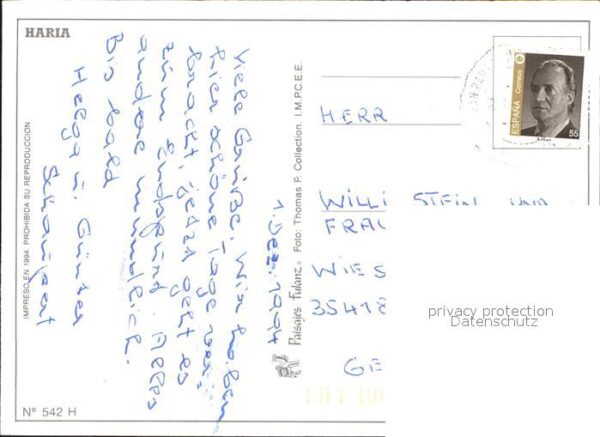 HARIA
1. Dez. 1994
Viele Grüße. Wir haben
hier schöne Tage ver-
bracht, jetzt geht es
zum Endspurt. Alles
andere mündlich.
Bis bald
Helga u. Günter
HERR
WILLI STEIN UND
FRAU
WIES
35418
GE
ESPAÑA Correos
55
IMPRESO EN 1994 PROHIBIDA SU REPRODUCCION
Paisajes Fulanz. Foto: Thomas P. Collection. I.M.P.C.E.E.
Nº 542 H
privacy protection
Datenschutz